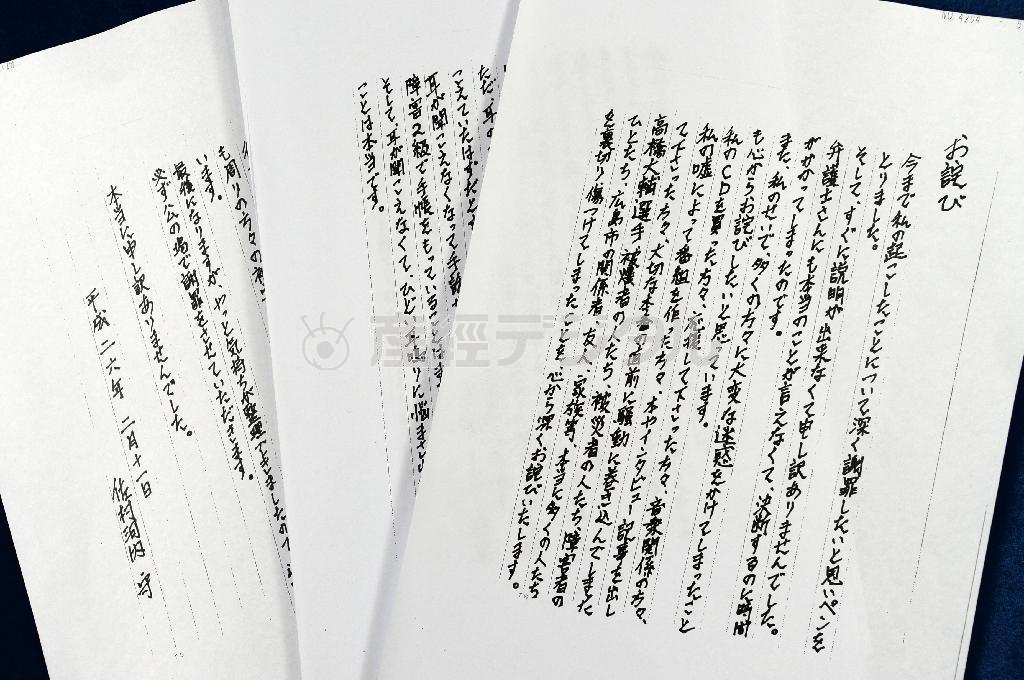 お詫び
今まで私の起こしたことについて深く謝罪したいと思いペンを
とりました。
そして、すぐに説明が出来なくて申し訳ありませんでした。
弁護士さんにも本当のことが言えなくて、決断するのに時間
がかかってしまったのです。
また、私のせいで多くの方々に大変な迷惑をかけてしまったこと
も心からお詫びしたいと思っています。
私のCDを買った方々、応援して下さった方々、音楽関係の方々、
私の嘘によって番組を作った方々、本やインタビュー記事を出し
て下さった方々、大切な本番の前に騒動に巻き込んでしまった
高橋大輔選手、被爆者の人たち、被災者の人たち、障害者の
ひとたち、広島市の関係者、友人、家族等、本当に多くの人たち
を裏切り傷つけてしまったことを、心から深くお詫びいたします。
ただ、耳の
こえていたはずだと
耳が聞こえなくなって手話
障害2級で手帳をもっていることは
そして、耳が聞こえなくて、ひどい耳鳴りに悩まさ
ことは本当です。
も周りの方々の
います。
最後になりますが、やっと気持ちが整理できましたので
必ず公の場で謝罪をさせていただきます。
本当に申し訳ありませんでした。
平成二六年 二月十一日
佐村河内 守
産経デジタル